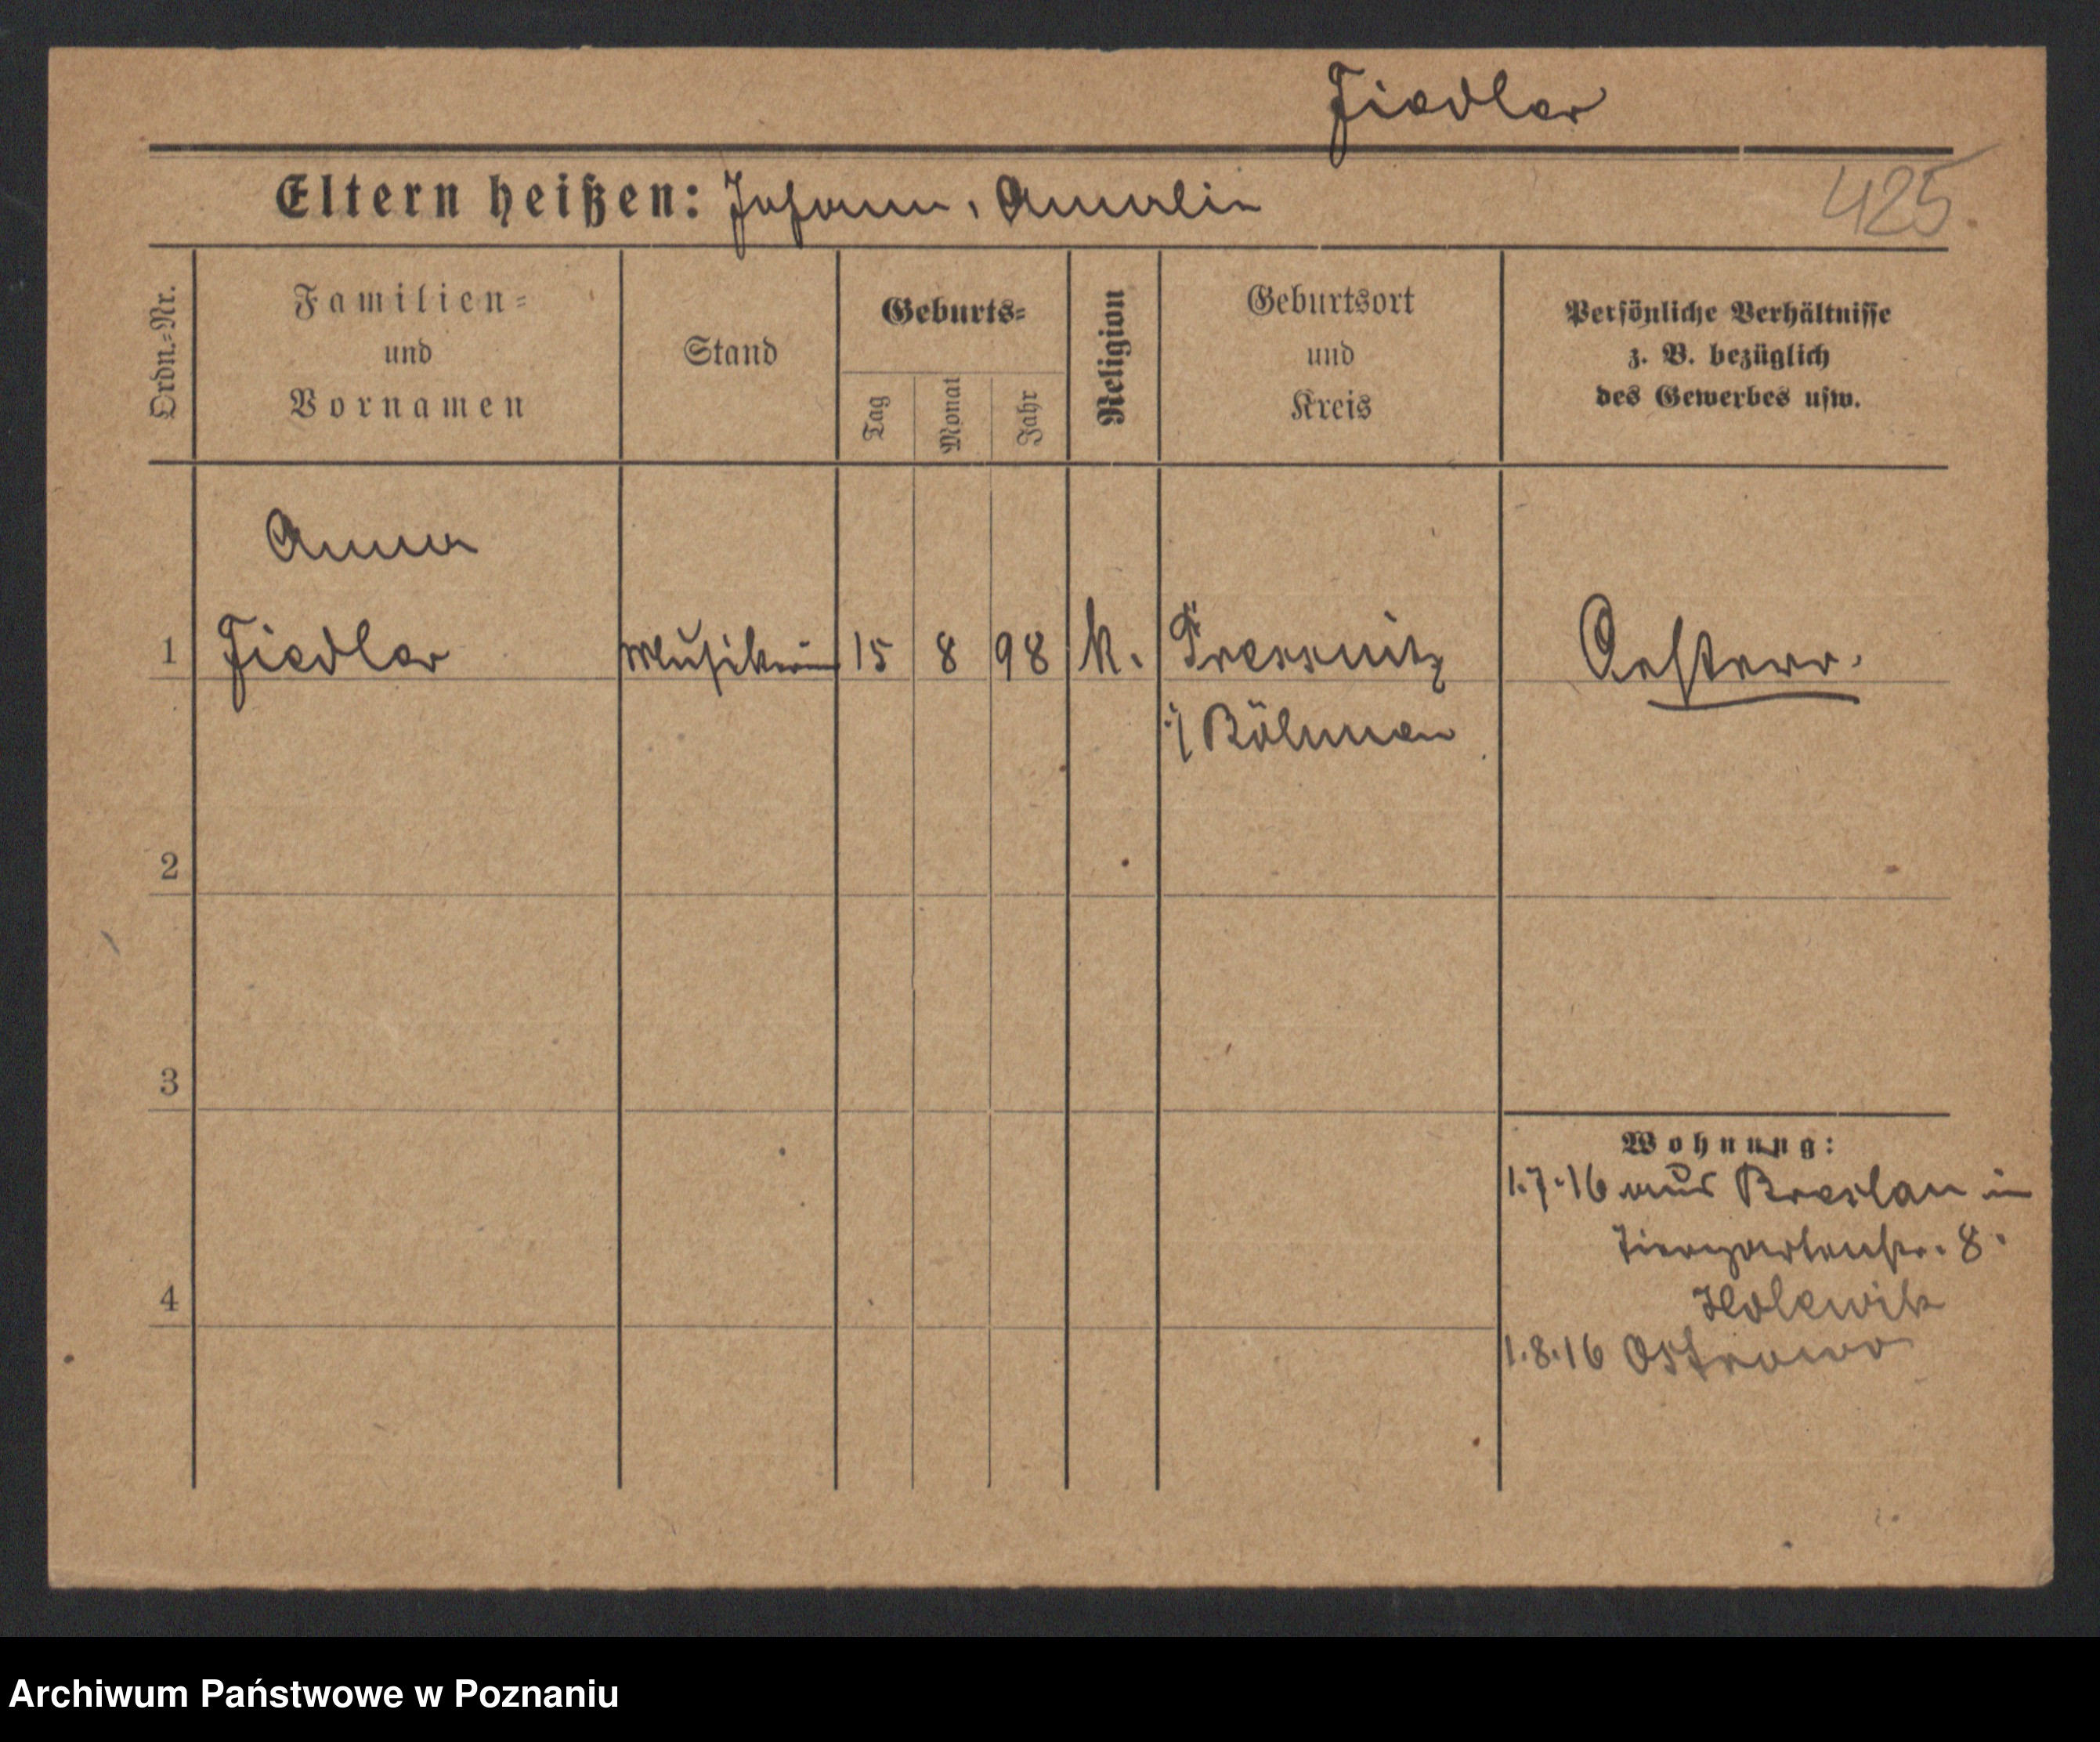 Fiedler
Eltern heißen: Johann, Amalie
425
Ordn.=Nr.
Familien=
und
Vornamen
Stand
Geburts=
Tag
Monat
Jahr
Religion
Geburtsort
und
Kreis
Persönliche Verhältnisse
z. B. bezüglich
des Gewerbes usw.
Anna
1 Fiedler Musikerin 15 8 98 k. Pressnitz Oesterr.
i/ Böhmen
2
3
4
Wohnung:
1.7.16 aus Breslau in
Tiergartenstr. 8.
1.8.16 Ostrowo
Archiwum Państwowe w Poznaniu